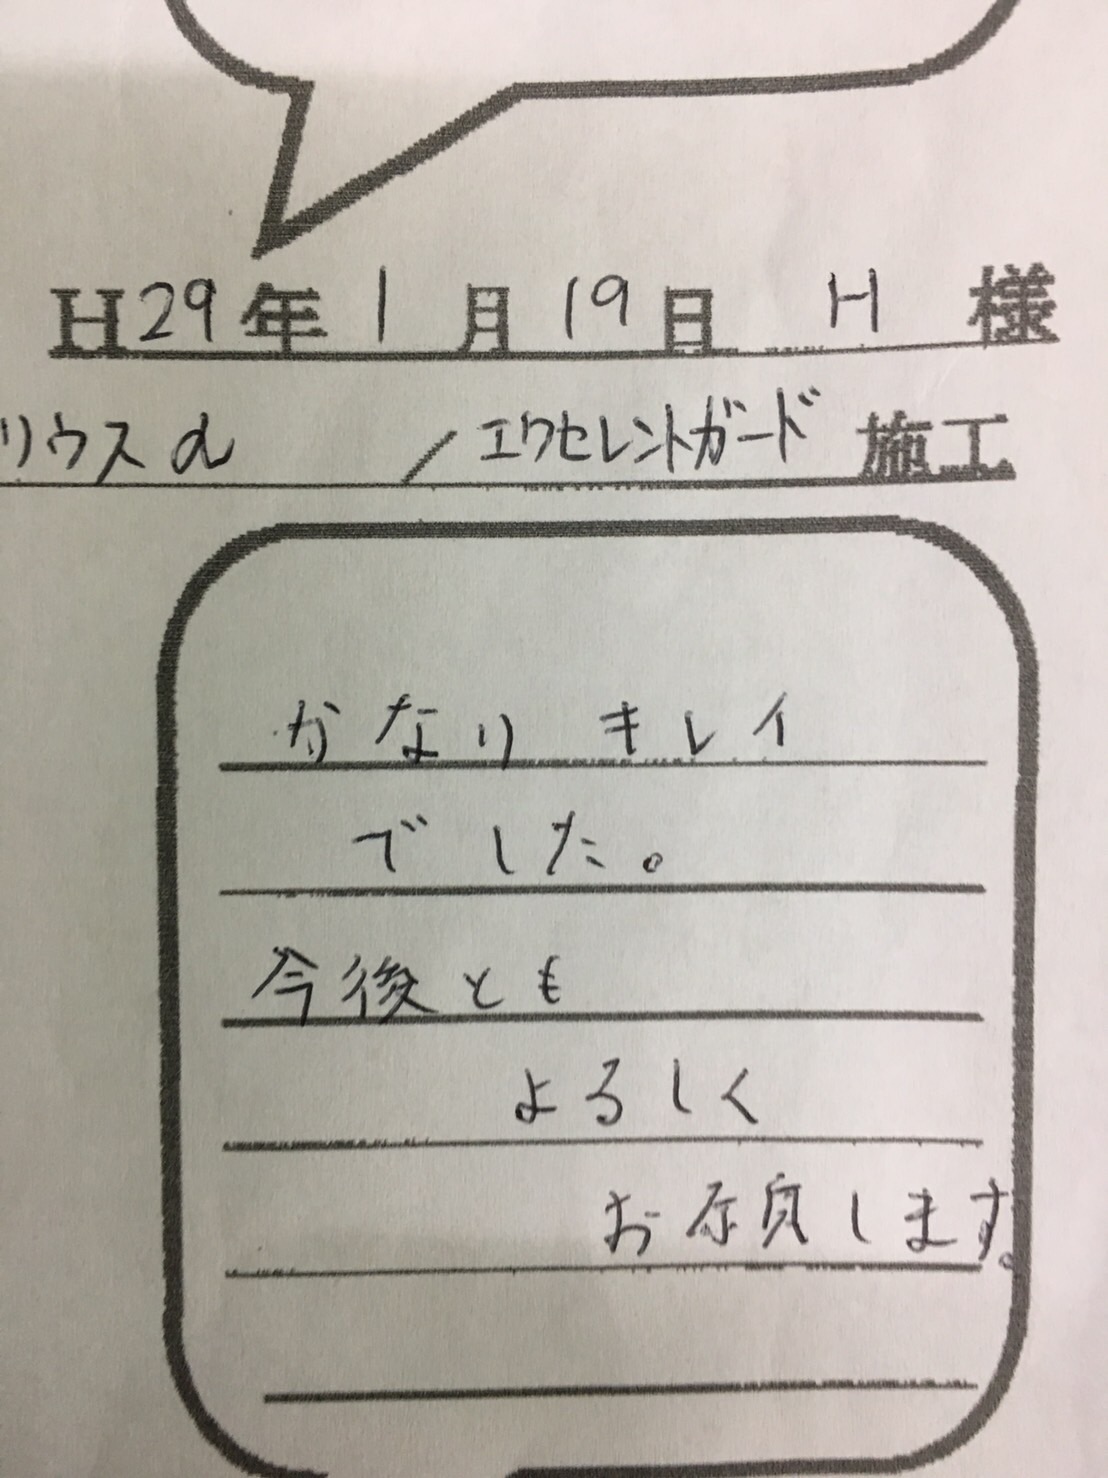 H29年1月19日 H 様
リウスα /エクセレントガード 施工
かなり キレイ
でした。
今後とも
よろしく
お願します。